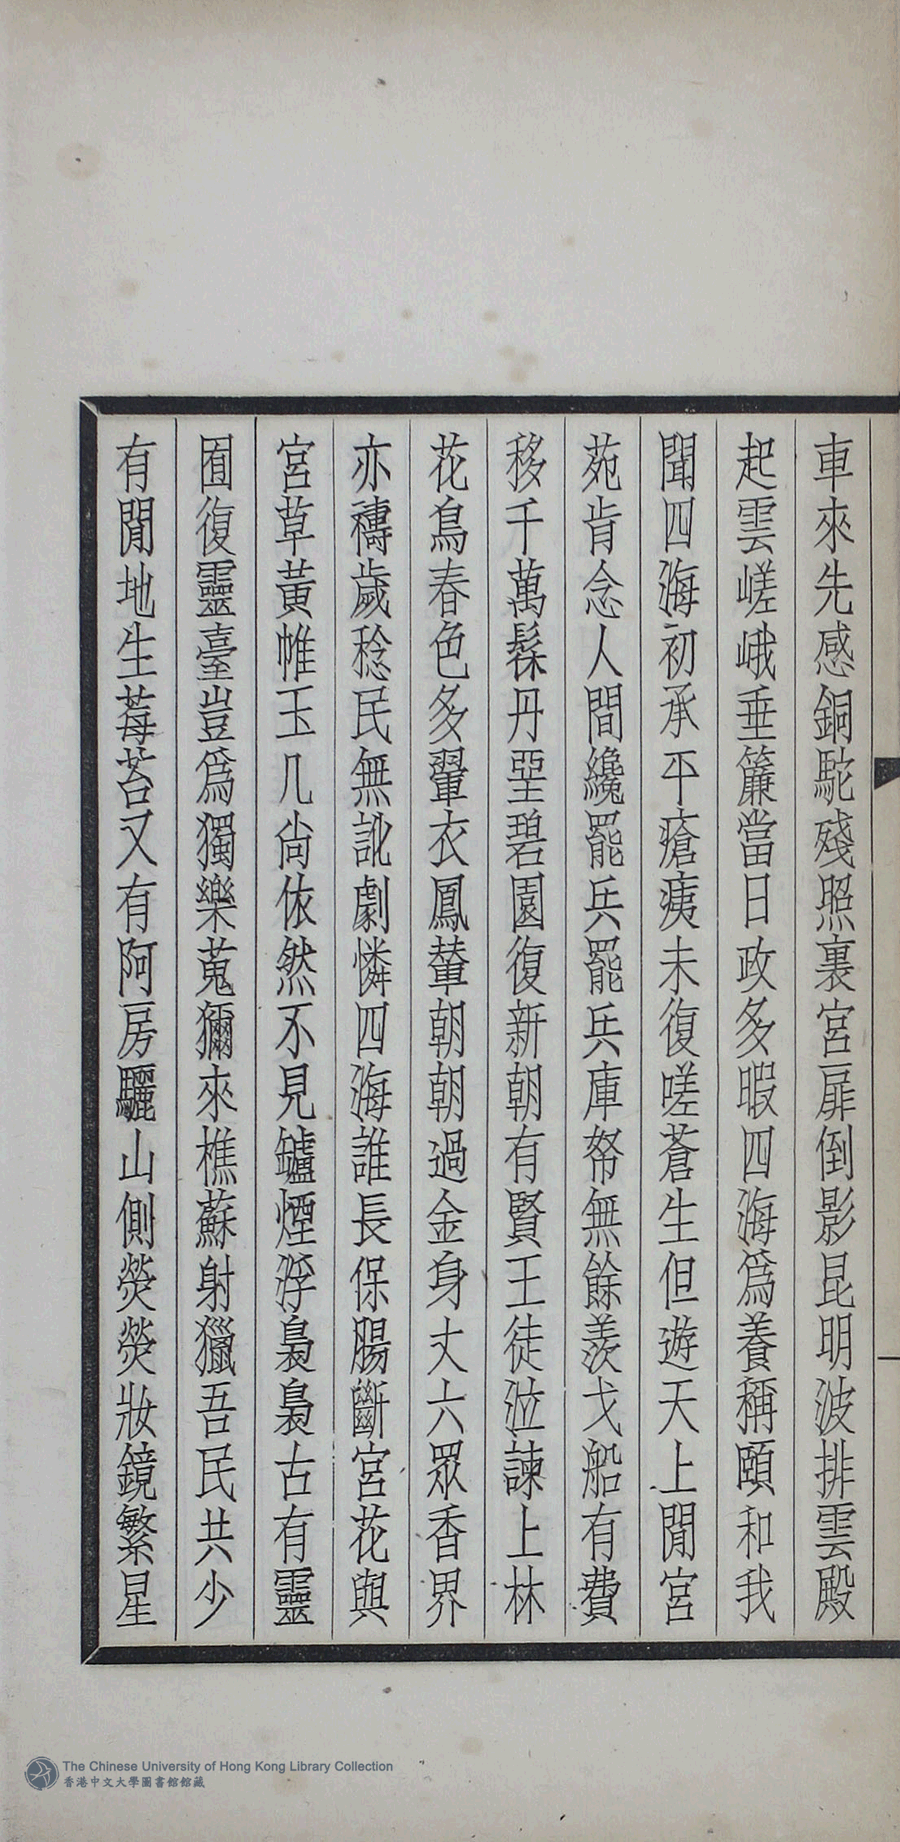 車來先感銅駝殘照裏宮扉倒影昆明波排雲殿
起雲嵯峨垂簾當日政多暇四海爲養稱頤和我
聞四海初承平瘡痍未復嗟蒼生但遊天上閒宮
苑肯念人間纔罷兵罷兵庫帑無餘羨戈船有費
移千萬髹丹堊碧園復新朝有賢王徒泣諫上林
花鳥春色多翬衣鳳輦朝朝過金身丈六眾香界
亦禱歲稔民無訛劇憐四海誰長保腸斷宮花與
宮草黃帷玉几尚依然不見鑪煙浮裊裊古有靈
囿復靈臺豈爲獨樂蒐獮來樵蘇射獵吾民共少
有閒地生莓苔又有阿房驪山側熒熒妝鏡繁星
The Chinese University of Hong Kong Library Collection
香港中文大學圖書館館藏